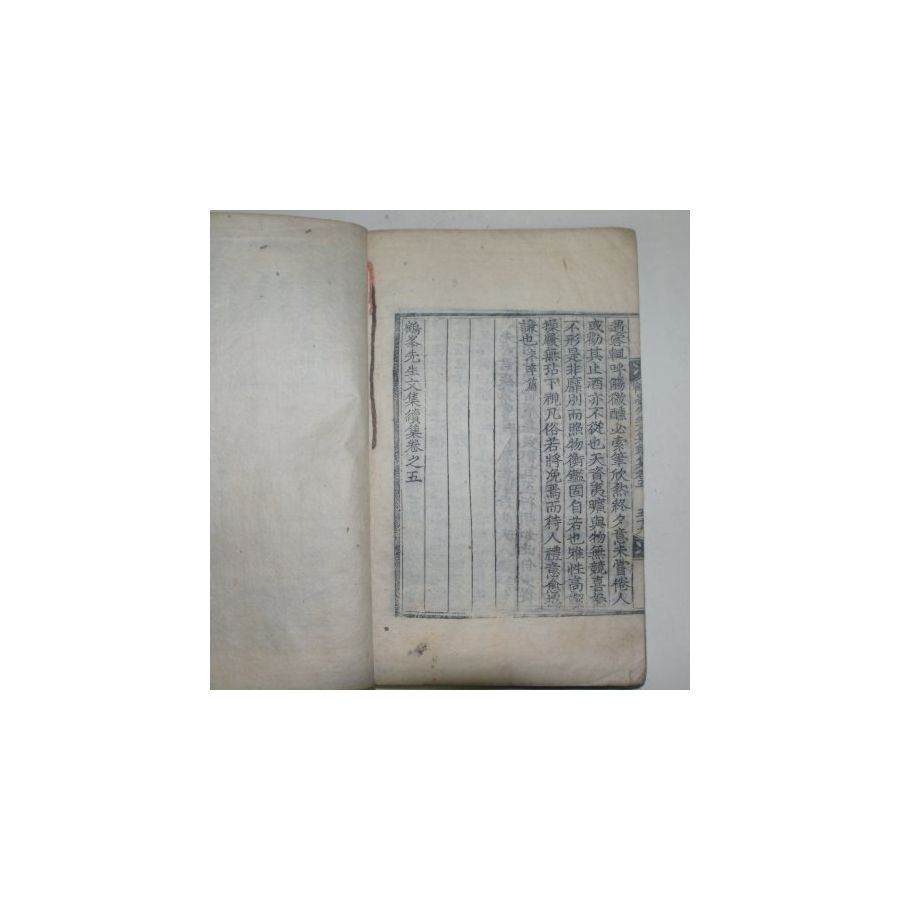 遇客輒呼觴微醺必索筆欣然終夕意未嘗倦人
或勸其止酒亦不從也天資夷曠與物無競喜怒
不形是非靡別而照物衡鑑固自若也雅性高潔
操履無玷下視凡俗若將凂焉而待人禮意愈
謙也 宋季篇
鶴峯先生文集續集卷之五